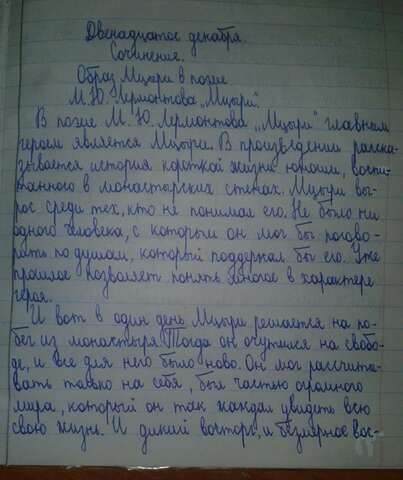 Двенадцатое декабря.
Сочинение.
Образ Мцыри в поэме
М.Ю. Лермонтова „Мцыри“.
В поэме М. Ю. Лермонтова „Мцыри“ главным
героем является Мцыри. В произведении расска-
зывается история короткой жизни юноши, воспи-
танного в монастырских стенах. Мцыри вы-
рос среди тех, кто не понимал его. Не было ни
одного человека, с которым он мог бы погово-
рить по душам, который поддержал бы его. Уже
прошлое позволяет понять многое в характере
героя.
И вот в один день Мцыри решается на по-
бег из монастыря. Тогда он очутился на свобо-
де, и все для него было ново. Он мог рассчиты-
вать только на себя, был частью огромного
мира, который он так жаждал увидеть всю
свою жизнь. И дикий восторг, и безмерное вос-